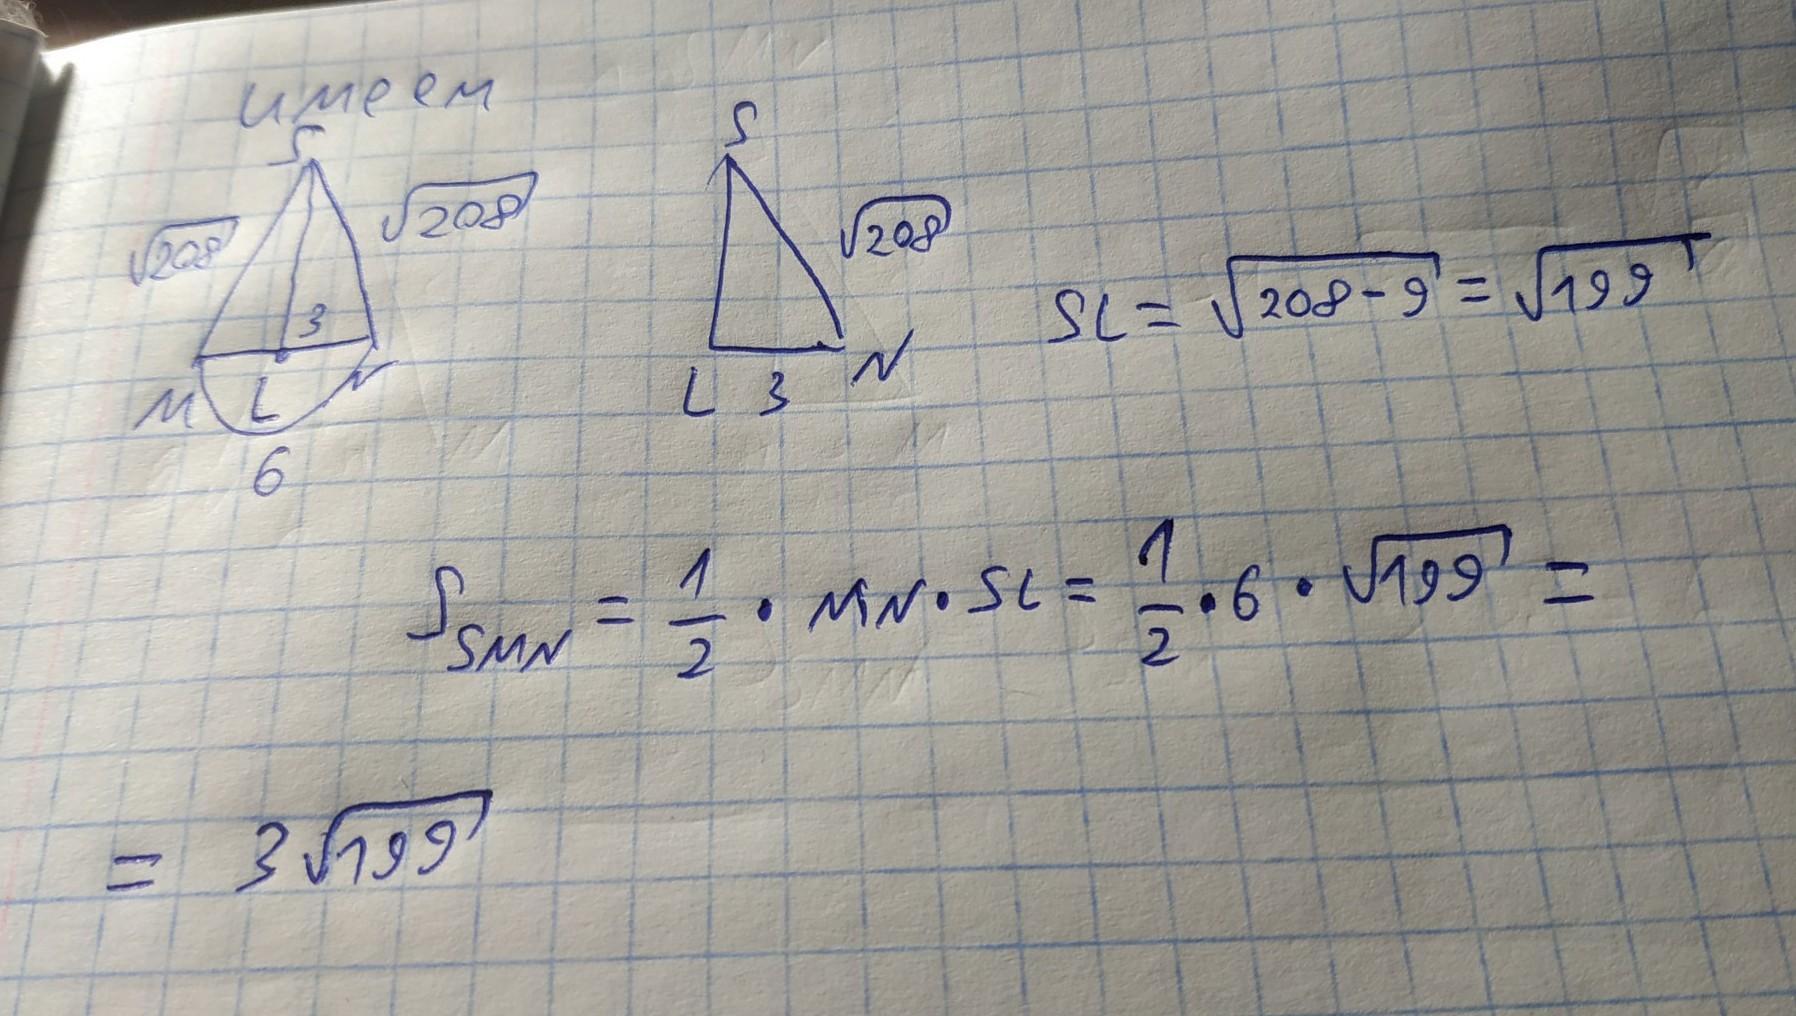 имеем
S
√208 √208
3
M L N
6
S
√208
L 3 N
SL = √208-9 = √199
S SMN = 1/2 · MN · SL = 1/2 · 6 · √199 =
= 3√199